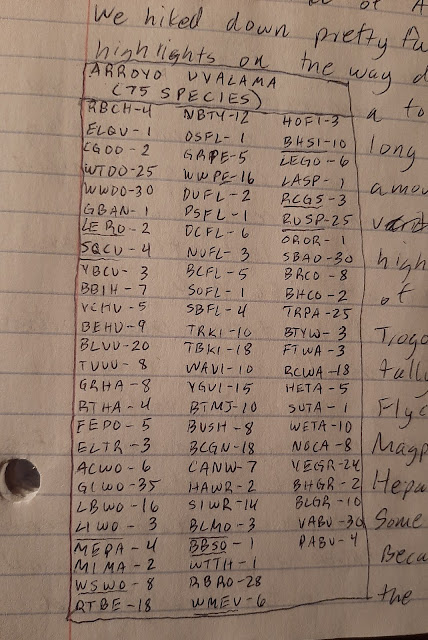 We hiked down pretty
highlights on the way
ARROYO UVALAMA
(75 SPECIES)
RBCH-4
ELQU-1
CGDO-2
WTDO-25
WWDO-30
GBAN-1
LERO-2
SQCU-4
YBCU-3
BBIH-7
VCHU-5
BEHU-9
BLVU-20
TUVU-8
GRHA-8
RTHA-4
FEPO-5
ELTR-3
ACWO-6
GIWO-35
LBWO-16
LIWO-3
MEPA-4
MIMA-2
WSWO-8
RTBE-18
NBTY-12
OSFL-1
GRPE-5
WWPE-16
DUFL-2
PSFL-1
DCFL-6
NUFL-3
BCFL-5
SOFL-1
SBFL-4
TRKI-10
TBKI-18
WAVI-10
YGVI-15
BTMJ-10
BUSH-8
BCGN-18
CANW-7
HAWR-2
SIWR-14
BLMO-3
BBSO-1
WTTH-1
RBRO-28
WMEU-6
HOFI-3
BHSI-10
LEGO-6
LASP-1
RCGS-3
RUSP-25
OROR-1
SBAO-30
BRCO-8
BHCO-2
TRPA-25
BTYW-3
FTWA-3
RCWA-18
HETA-5
SUTA-1
WETA-10
NOCA-8
YEGR-24
BHGR-2
BLGR-10
VABU-30
PABU-4
a to
long
amou
high
of
Trogo
tally
Flyc
Magp
Hepa
Some
Beca
the